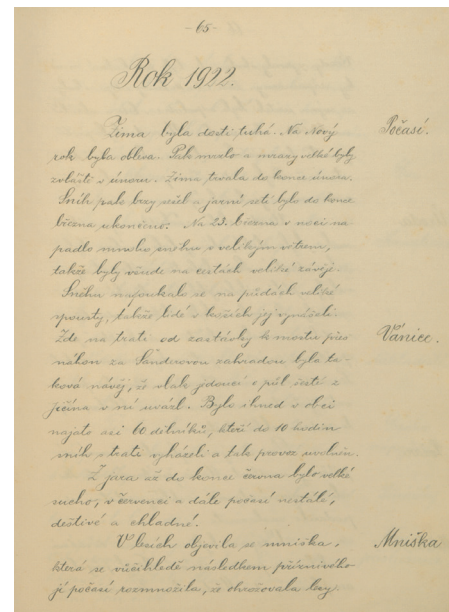 -65-
Rok 1922.
Zima byla dosti tuhá. Na Nový
Počasí.
rok byla obleva. Pak mrzlo a mrazy velké byly
zvláště v únoru. Zima trvala do konce února.
Sníh pak brzy sešel a jarní setí bylo do konce
března ukončeno. Na 23. března v noci na
padlo mnoho sněhu s velikým větrem,
takže byly všude na cestách veliké závěje.
Sněhu nafoukalo se na půdách veliké
spousty, takže lidé v koších jej vynášeli.
Zde na trati od zastávky k mostu přes
Vánice.
náhon za zahradou byla ta-
ková návěj, že vlak jdoucí o půl šesté z
Jičína v ní uvázl. Bylo ihned v obci
najato asi dělníků, kteří do 10 hodin
sníh s trati vyházeli a tak provoz uvolnili.
Z jara až do konce června bylo velké
sucho, v červenci a dále počasí nestálé,
deštivé a chladné.
V lesích objevila se mniška,
Mniška
která se vůčihledě následkem příznivého
jí počasí rozmnožila, že ohrožovala lesy.